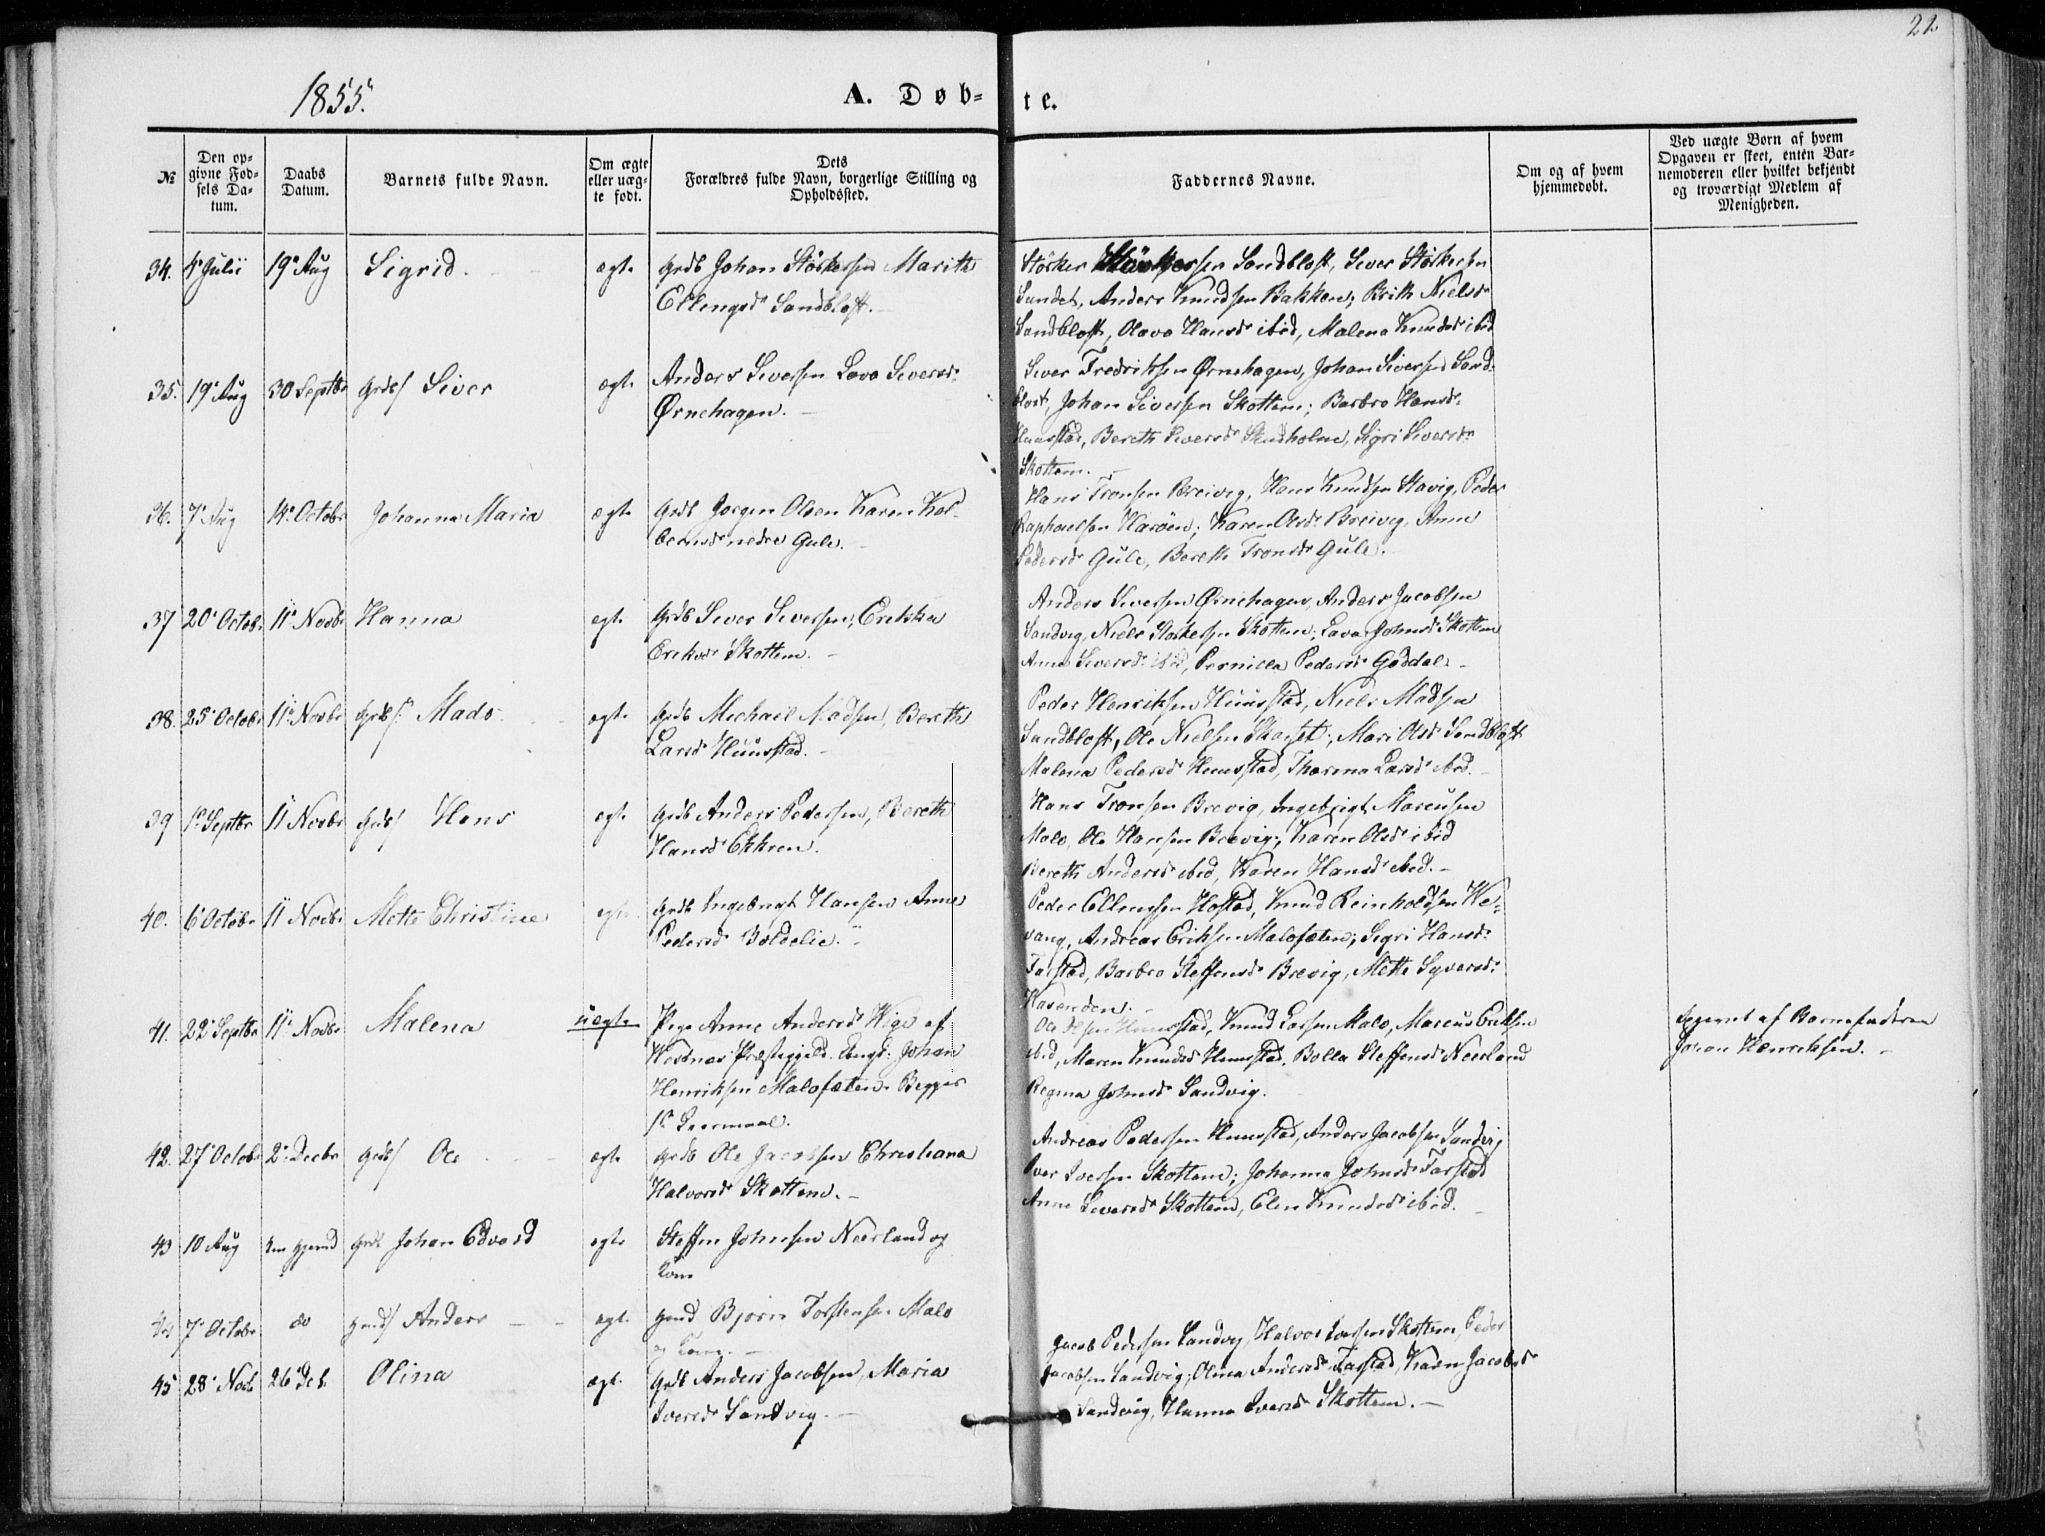 22.
1855.
A. Døb-
te.
№
Den op-
givne Fød-
sels Da-
tum.
Daabs
Datum.
Barnets fulde Navn.
Om ægte
eller uæg-
te født.
Dets
Forældres fulde Navn, borgerlige Stilling og
Opholdssted.
Faddernes Navne.
Om og af hvem
hjemmedøbt.
Ved uægte Børn af hvem
Opgaven er skeet, enten Bar-
nemoderen eller hvilket bekjendt
og troværdigt Medlem af
Menigheden.
34. 4 Julii 19 Aug Sigrid. ægte Johan Størkersen Marith
Ellingsd Sandblost.
Størker Størkersen Sandblost, Siver Størkersen
Sandet, Anders Knudsen Bakken; Brith Nielsd
Sandblost, Olava Hansd ibid, Malena Knudsd ibid
35. 19 Aug 30 Septbr Siver ægte Anders Siversen Lava Siversd
Ørnehagen.
Siver Fredriksen Ørnehagen, Johan Siversen Sand
blost, Johan Siversen Skottem; Barbro Hansd
Huustad, Bereth Siversd, Sigri Siversd
Skottem.
36. 7 Aug 14 Octobr Johanna Maria ægte Jørgen Olsen Karen Kol-
beensd nedre Gule.
Hans Tronsen Breivig, Hans Knudsen Stavig, Peder
Raphaelsen Harøen; Karen Olsd Breivig, Anne
Pedersd Gule, Bereth Tronsd Gule.
37 20 Octobr 11 Novbr Hanna ægte Siver Siversen, Erikka
Eriksd Skottem.
Anders Siversen Ørnehagen, Anders Jacobsen
Sandvig, Niels Størkersen Skottem; Lava Johnsd Skottem
Anne Siversd ibid, Pernilla Pedersd Gaddal
38. 25 Octobr 11 Novbr Mads ægte Michael Madsen, Bereth
Larsd Huustad.
Peder Henriksen Huustad, Niels Madsen
Sandblost, Ole Nielsen; Mari Olsd Sandblost
Malena Pedersd Huustad, Larsd ibid.
39 1 Septbr 11 Novbr Hans ægte Anders Pedersen, Bereth
Hansd Ekkren.
Hans Tronsen Brevig, Ingebrigt Marcusen
Malo, Ole Hansen Brevig; Karen Olsd ibid
Bereth Andersd ibid, Karen Hansd ibid.
40. 6 Octobr 11 Novbr Mette Christine ægte Ingebrigt Hansen Anne
Pedersd Boldelie.
Peder Ellingsen Hostad, Knud Reinholdsen
vang, Andreas Eriksen Malofæten; Sigri Hansd
Farstad, Barbro Steffensd Brevig, Mette Syversd
41. 22 Septbr 11 Novbr Malena uægte Pige Anne Andersd af
Præstegjeld. Johan
Henriksen Malofæten. Begges
1 Leiermaal.
Huustad, Knud Larsen Malo, Marcus Eriksen
ibid, Maren Knudsd Huustad, Bolla Steffensd Neerland
Regina Johnsd Sandvig.
af Barnefaderen
Johan Henriksen.
42. 27 Octobr 2 Decbr Ole ægte Ole Jacobsen Christiana
Halvorsd Skottem.
Andreas Pedersen Huustad, Anders Jacobsen Sandvig
Iver Iversen Skottem; Johanna Johnsd Farstad
Anne Siversd Skottem, Elen Knudsd ibid.
43 10 Aug Johan Edvard ægte Steffen Johnsen Neerland og
Kone
44 7 Octobr do Anders ægte Bjørn Torstensen Malo
og Kone.
45 28 Novb 26 Dcb. Olina ægte Anders Jacobsen, Maria
Iversd Sandvig.
Jacob Pedersen Sandvig, Halvor Iversen Skottem, Peder
Jacobsen Sandvig; Olina Andersd Farstad, Karen Jacobsd
Sandvig, Hanna Iversd Skottem.